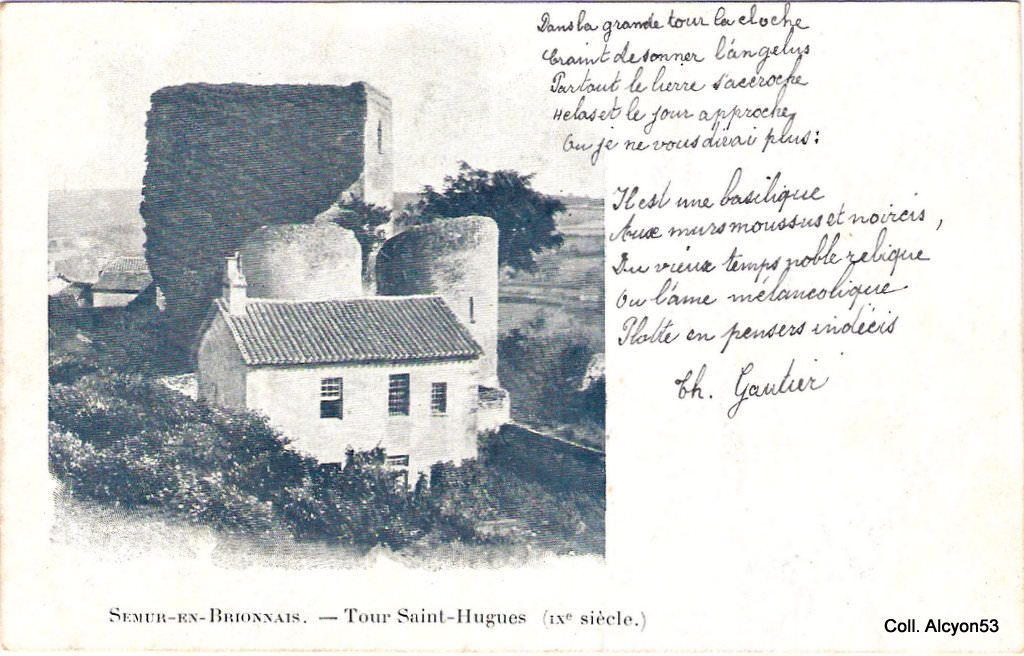 Dans la grande tour la cloche
Craint de sonner l'angelus
Partout le lierre s'accroche
Helas et le jour approche
Ou je ne vous dirai plus:
Il est une basilique
Aux murs moussus et noircis,
Du vieux temps noble relique
Ou l'âme mélancolique
Flotte en pensers indécis
Th. Gautier
SEMUR-EN-BRIONNAIS. — Tour Saint-Hugues (IXe siècle.)
Coll. Alcyon53